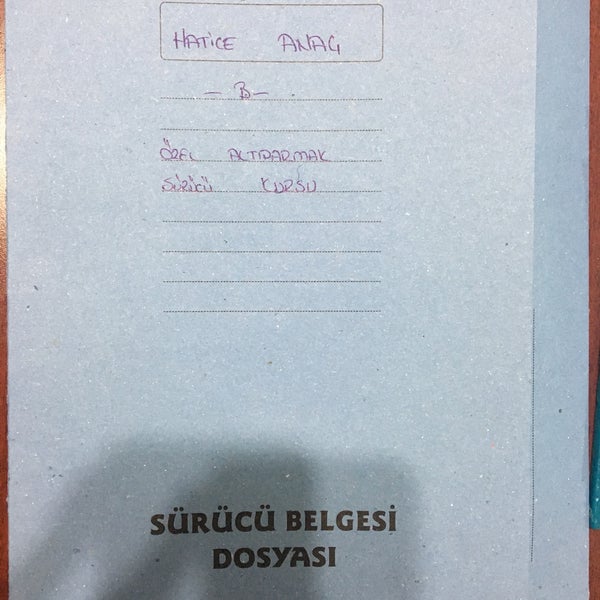 HATİCE ANAÇ
- B -
ÖZEL ALTIPARMAK
SÜRÜCÜ KURSU
SÜRÜCÜ BELGESİ
DOSYASI